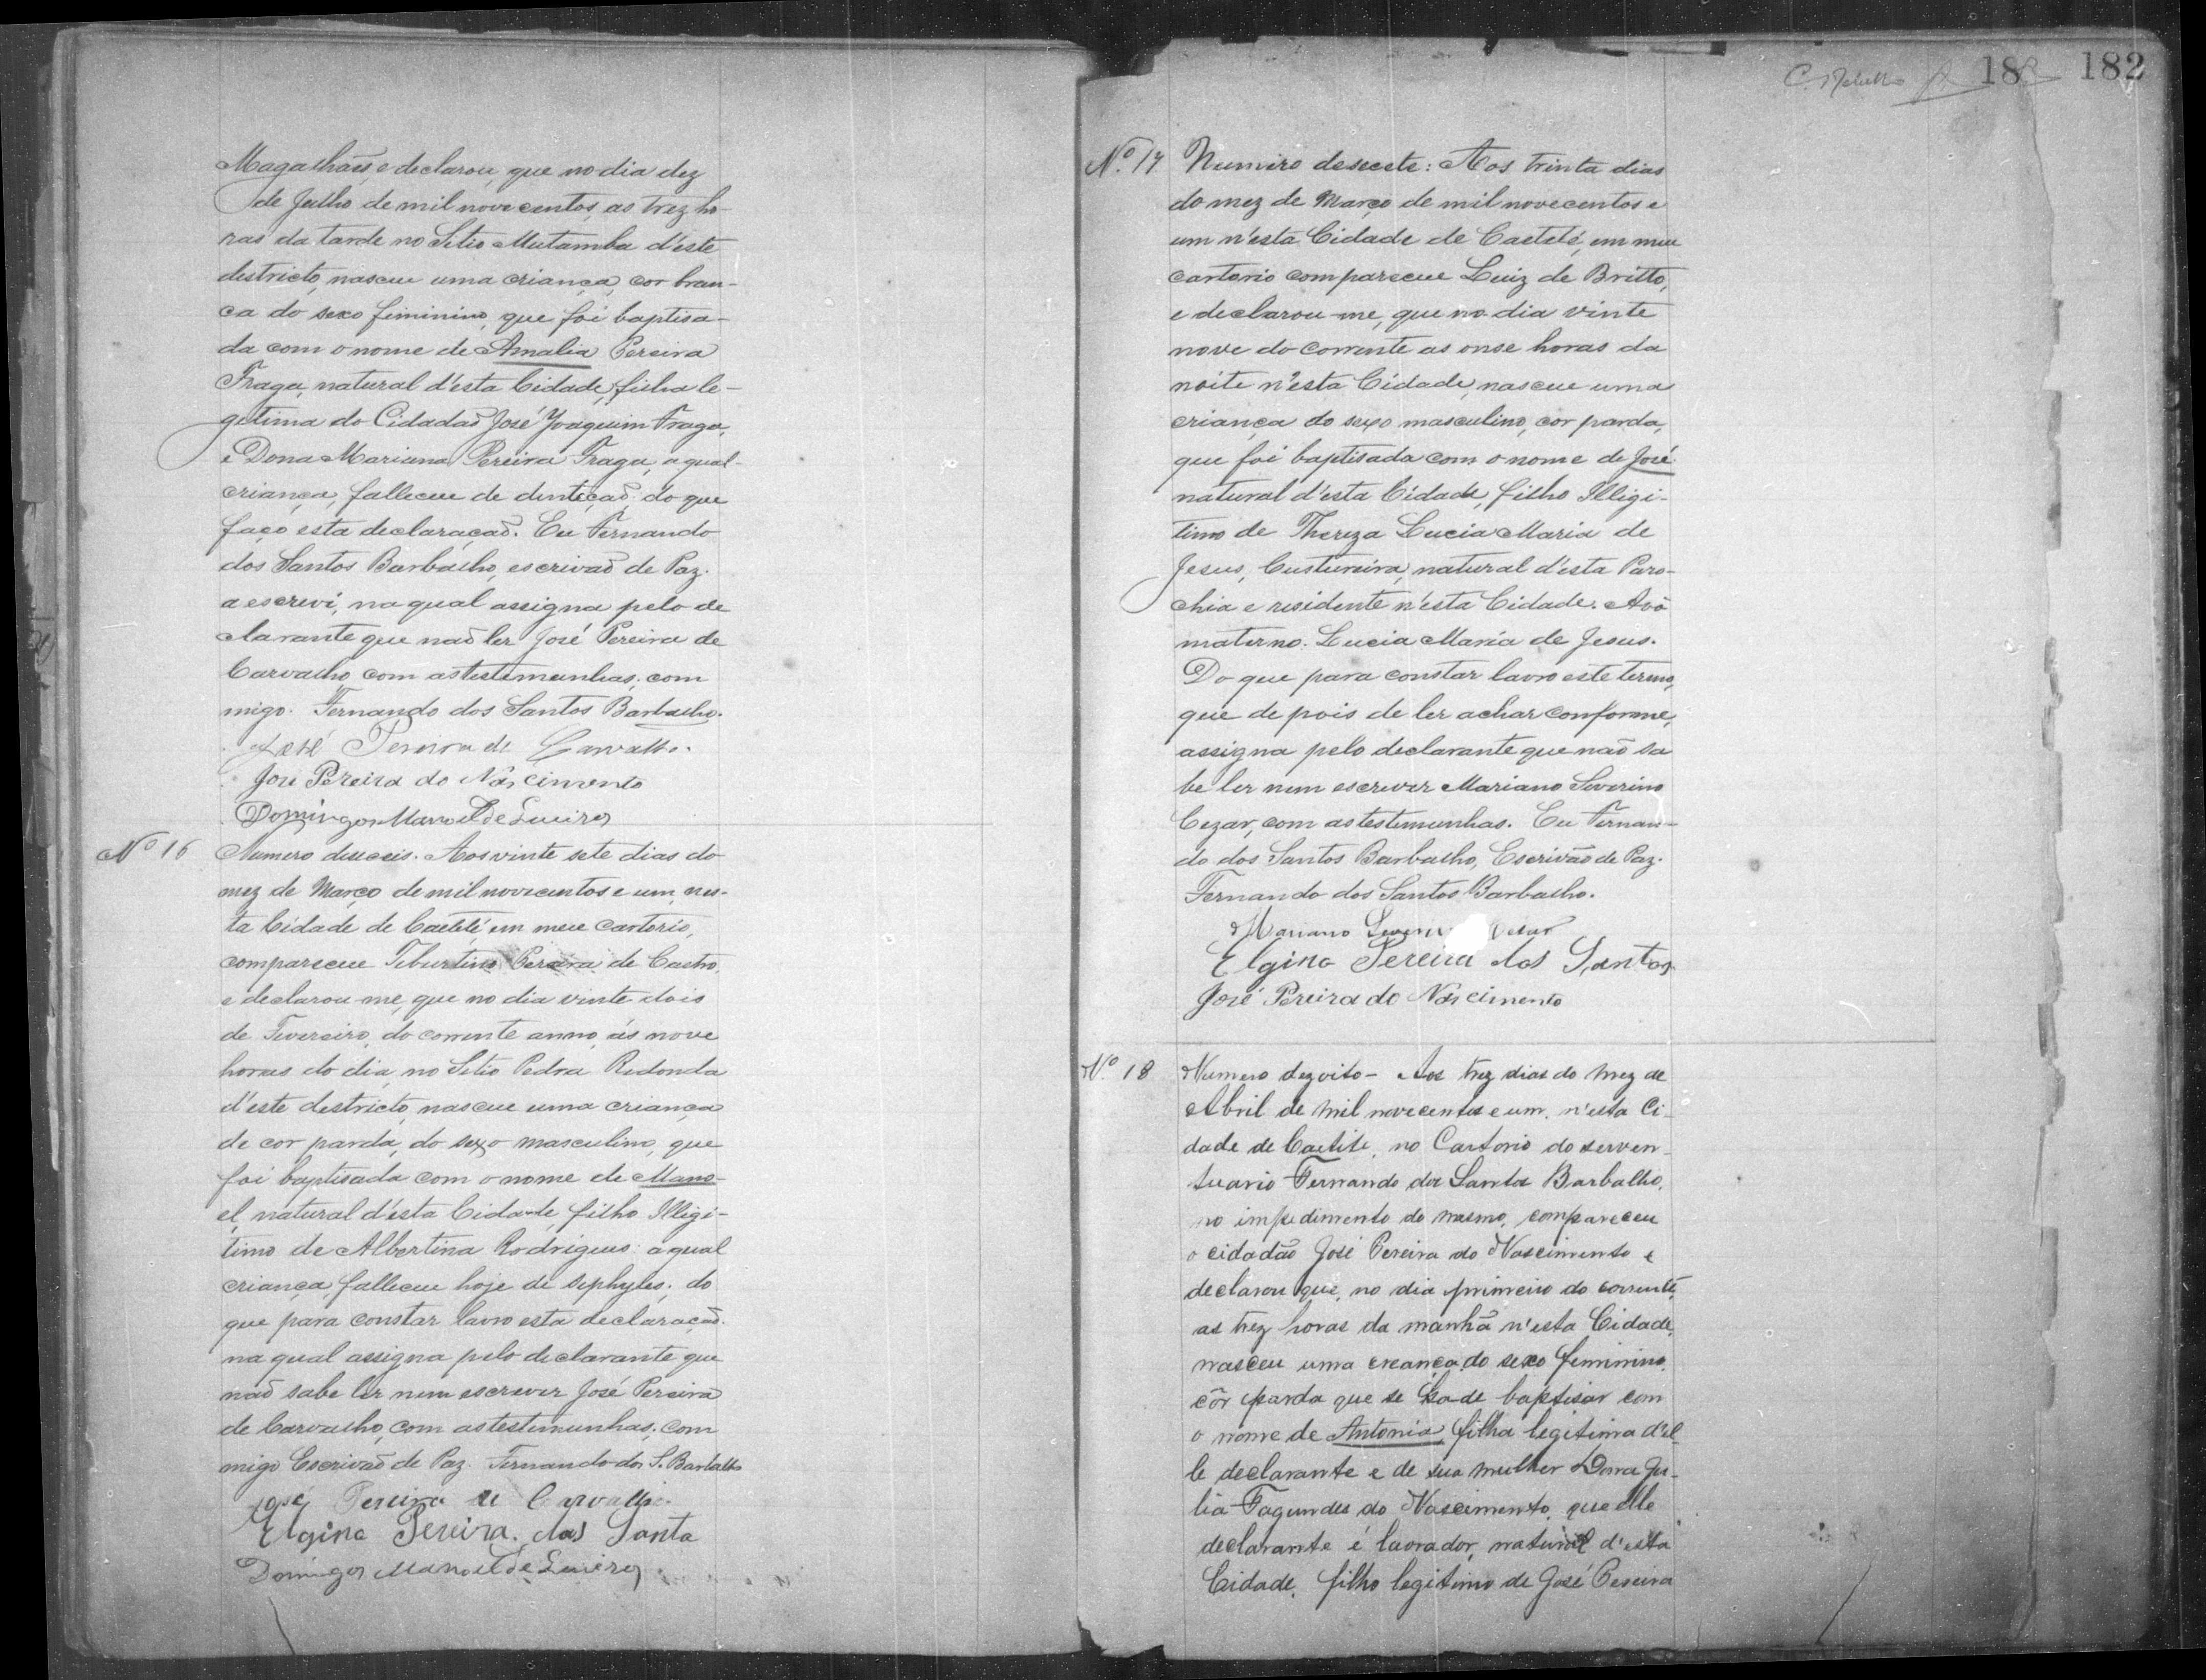 Magalhães, e declarou, que no dia dez
de Julho de mil novecentos, as trez ho-
ras da tarde no Sitio Mutamba d'este
destricto, nasceu uma criança, cor bran-
ca do sexo feminino, que foi baptisa-
da com o nome de Amalia Pereira
Fraga, natural d'esta Cidade, filha le-
getima do Cidadaõ José Joaquim Fraga,
e Dona Mariana Pereira Fraga, a qual
criança, falleceu de dentiçaõ do que
faço esta declaraçaõ. Eu Fernando
dos Santos Barbalho, escrivaõ de Paz.
a escrevi, na qual assigna pelo de
clarante que naõ ler José Pereira de
Carvalho com as testemunhas, com
migo. Fernando dos Santos Barbalho.
José Pereira de Carvalho.
Jose Pereira do Nascimento
Domingos Manoel de
Nº 16 Numero deseceis. Aos vinte sete dias do
mez de Março de mil novecentos e um, nes-
ta Cidade de Caetité em meu cartorio,
compareceu Tiburtino Pereira de Castro,
e declarou-me, que no dia vinte dois
de Fevereiro, do corrente anno, ás nove
horas do dia, no Sitio Pedra Redonda
d'este destricto, nasceu uma criança
de cor parda, do sexo masculino, que
foi baptisada com o nome de Mano-
el, natural d'esta Cidade, filho Illigi-
timo de Albertina Rodrigues: a qual
criança, falleceu hoje de siphyles, do
que para constar lavro esta declaraçaõ.
na qual assigna pelo declarante que
naõ sabe ler nem escrever José Pereira
de Carvalho, com as testemunhas, com
migo Escrivaõ de Paz. Fernando dos S. Barbalho
José Pereira de Carvalho.
Elgino Pereira dos Santo
Domingos Manoel de
182
Nº 17 Numero desecete: Aos trinta dias
do mez de Março de mil novecentos e
um n'esta Cidade de Caetité, em meu
cartorio compareceu Luiz de Britto,
e declarou-me, que no dia vinte
nove do corrente as onse horas da
noite n'esta Cidade, nasceu uma
criança do sexo masculino, cor parda,
que foi baptisada com o nome de José
natural d'esta Cidade, filho Illigi-
timo de Thereza Lucia Maria de
Jesus, Custureira, natural d'esta Paro-
chia e residente n'esta Cidade. Avô
materno. Lucia Maria de Jesus.
Do que para constar lavro este termo,
que depois de ler achar conforme,
assigna pelo declarante que naõ sa
be ler nem escrever Mariano Severino
Cezar, com as testemunhas. Eu Fernan-
do dos Santos Barbalho, Escrivão de Paz.
Fernando dos Santos Barbalho.
Mariano Cesar
Elgino Pereira dos Santos
José Pereira do Nascimento
Nº 18 Numero dezoito - Aos trez dias do mez de
Abril de mil novecentos e um, n'esta Ci-
dade de Caetite, no Cartorio do serven-
tuario Fernando dos Santos Barbalho,
no impedimento do mesmo, compareceu
o cidadão José Pereira do Nascimento e
declarou que, no dia primeiro do corrente,
as trez horas da manhã n'esta Cidade,
nasceu uma creança do sexo feminino,
côr parda que se ha de baptisar com
o nome de Antonia, filha legitima d'el-
le declarante e de sua mulher Dona Ju-
lia Fagundes do Nascimento, que elle
declarante é lavrador, natural d'esta
Cidade, filho legitimo de José Pereira